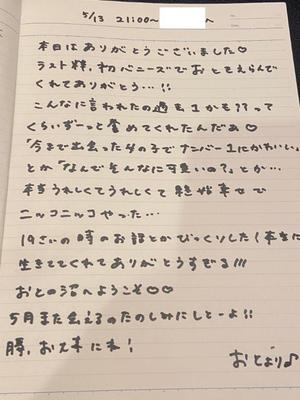 5/13 21:00〜 へ
本日はありがとうございました♡
ラスト枠、初バニーズでおとをえらんで
くれてありがとう…!!
こんなに言われたの過去1かも??って
くらいずーっと誉めてくれたんだぁ♡
「今まで出会った女の子でナンバー1にかわいい」
とか「なんでそんなに可愛いの?」とか…
本当うれしくてうれしくて終始幸せで
ニッコニッコやった…
19さいの時のお話とかびっくりした(本当に
生きててくれてありがとうすぎる!!!
おとの沼へようこそ♡♡
5月また会えるのたのしみにしとーよ!!
腰、お大事にね!
おとより♪